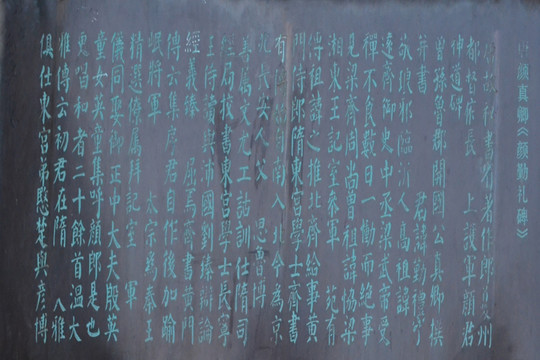 唐 顏真卿《顏勤礼碑》
故祕書省著作郎夔州
都督府長 上護軍顏君
神道碑
曾孫魯郡開國公真卿撰
并書 君諱勤禮字
敬琅邪臨沂人高祖諱
遠齊御史中丞梁武帝受
禪不食數日一慟而絕事
見梁齊周 曾祖諱協梁
湘東王記室參軍 苑有
傳祖諱之推北齊給事黃
門侍郎隋東宮學士齊書
有傳 自南入北今為京
兆長安人父 思魯博
善屬文尤工詁訓仕隋司
經局校書東宮學士長寧
王侍讀與沛國劉臻辯論
經義臻 屈焉齋書黃門
傳云集序君自作後加踰
岷將軍 太宗為秦王
精選僚屬拜記室 軍
儀同娶御正中大夫殷英
童女英童集呼顏郎是也
更唱和者二十餘首溫大
雅傳云初君在隋 雅
俱仕東宮弟愍楚與彥博